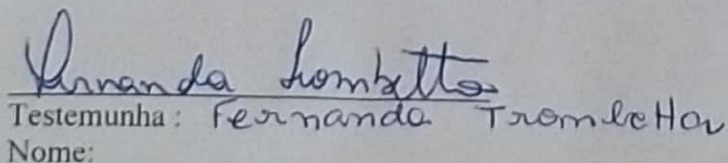 Fernanda Trombetta
Testemunha : Fernanda Trombetta
Nome: